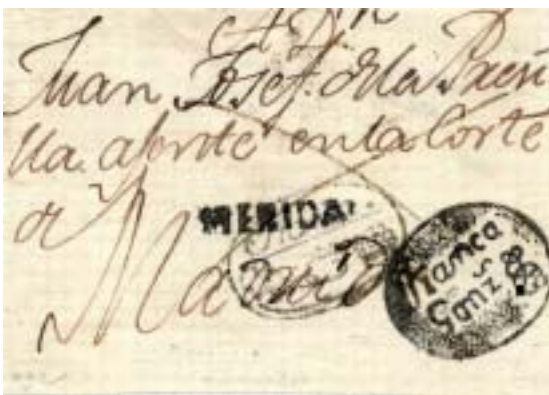 A Dn
Juan Josef. de la Paen
lla. ahente en la Corte
de
MERIDA
Madrid
Franca
S
Gonz